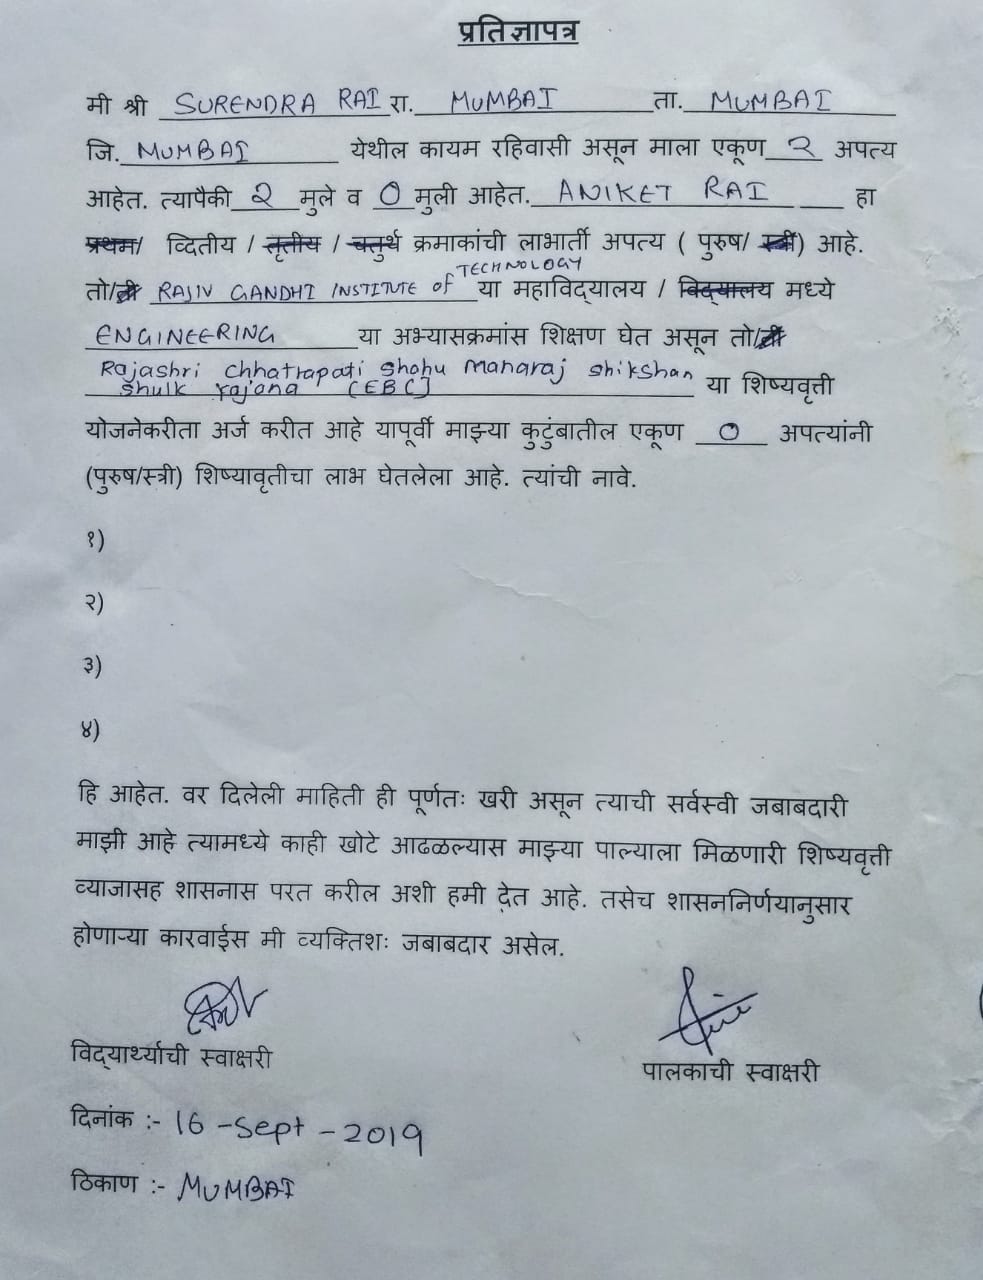 प्रतिज्ञापत्र
मी श्री SURENDRA RAI रा. MUMBAI ता. MUMBAI
जि. MUMBAI येथील कायम रहिवासी असून माला एकूण 2 अपत्य
आहेत. त्यापैकी 2 मुले व 0 मुली आहेत. ANIKET RAI हा
प्रथम/ व्दितीय / तृतीय / चतुर्थ क्रमाकांची लाभार्ती अपत्य ( पुरुष/ स्त्री) आहे.
तो/ती RAJIV GANDHI INSTITUTE OF TECHNOLOGY या महाविद्यालय / विद्यालय मध्ये
ENGINEERING या अभ्यासक्रमांस शिक्षण घेत असून तो/ती
Rajashri chhatrapati shahu Maharaj shikshan
shulk yojana (EBC) या शिष्यवृत्ती
योजनेकरीता अर्ज करीत आहे यापूर्वी माझ्या कुटुंबातील एकूण 0 अपत्यांनी
(पुरुष/स्त्री) शिष्यावृतीचा लाभ घेतलेला आहे. त्यांची नावे.
१)
२)
३)
४)
हि आहेत. वर दिलेली माहिती ही पूर्णतः खरी असून त्याची सर्वस्वी जबाबदारी
माझी आहे त्यामध्ये काही खोटे आढळल्यास माझ्या पाल्याला मिळणारी शिष्यवृत्ती
व्याजासह शासनास परत करील अशी हमी देत आहे. तसेच शासननिर्णयानुसार
होणाऱ्या कारवाईस मी व्यक्तिशः जबाबदार असेल.
विद्यार्थ्याची स्वाक्षरी
पालकाची स्वाक्षरी
दिनांक :- 16 -Sept -2019
ठिकाण :- MUMBAI